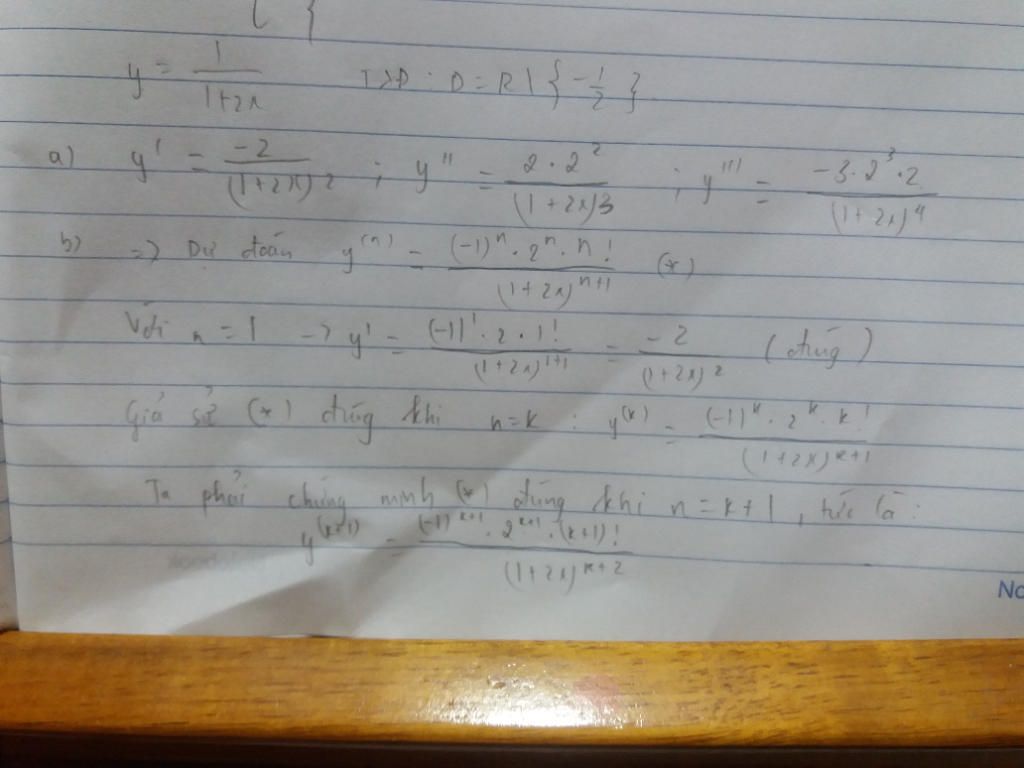 y = 1/(1+2x) TXĐ : D = R \ { -1/2 }
a) y' = -2/(1+2x)² ; y'' = 2·2²/(1+2x)³ ; y''' = -3·2³·2/(1+2x)⁴
b) => Dự đoán y⁽ⁿ⁾ = (-1)ⁿ·2ⁿ·n!/(1+2x)ⁿ⁺¹ (*)
Với n = 1 -> y' = (-1)¹·2·1!/(1+2x)¹⁺¹ = -2/(1+2x)² (đúng)
Giả sử (*) đúng khi n=k : y⁽ᵏ⁾ = (-1)ᵏ·2ᵏ·k!/(1+2x)ᵏ⁺¹
Ta phải chứng minh (*) đúng khi n = k+1, tức là:
y⁽ᵏ⁺¹⁾ = (-1)ᵏ⁺¹·2ᵏ⁺¹·(k+1)!/(1+2x)ᵏ⁺²